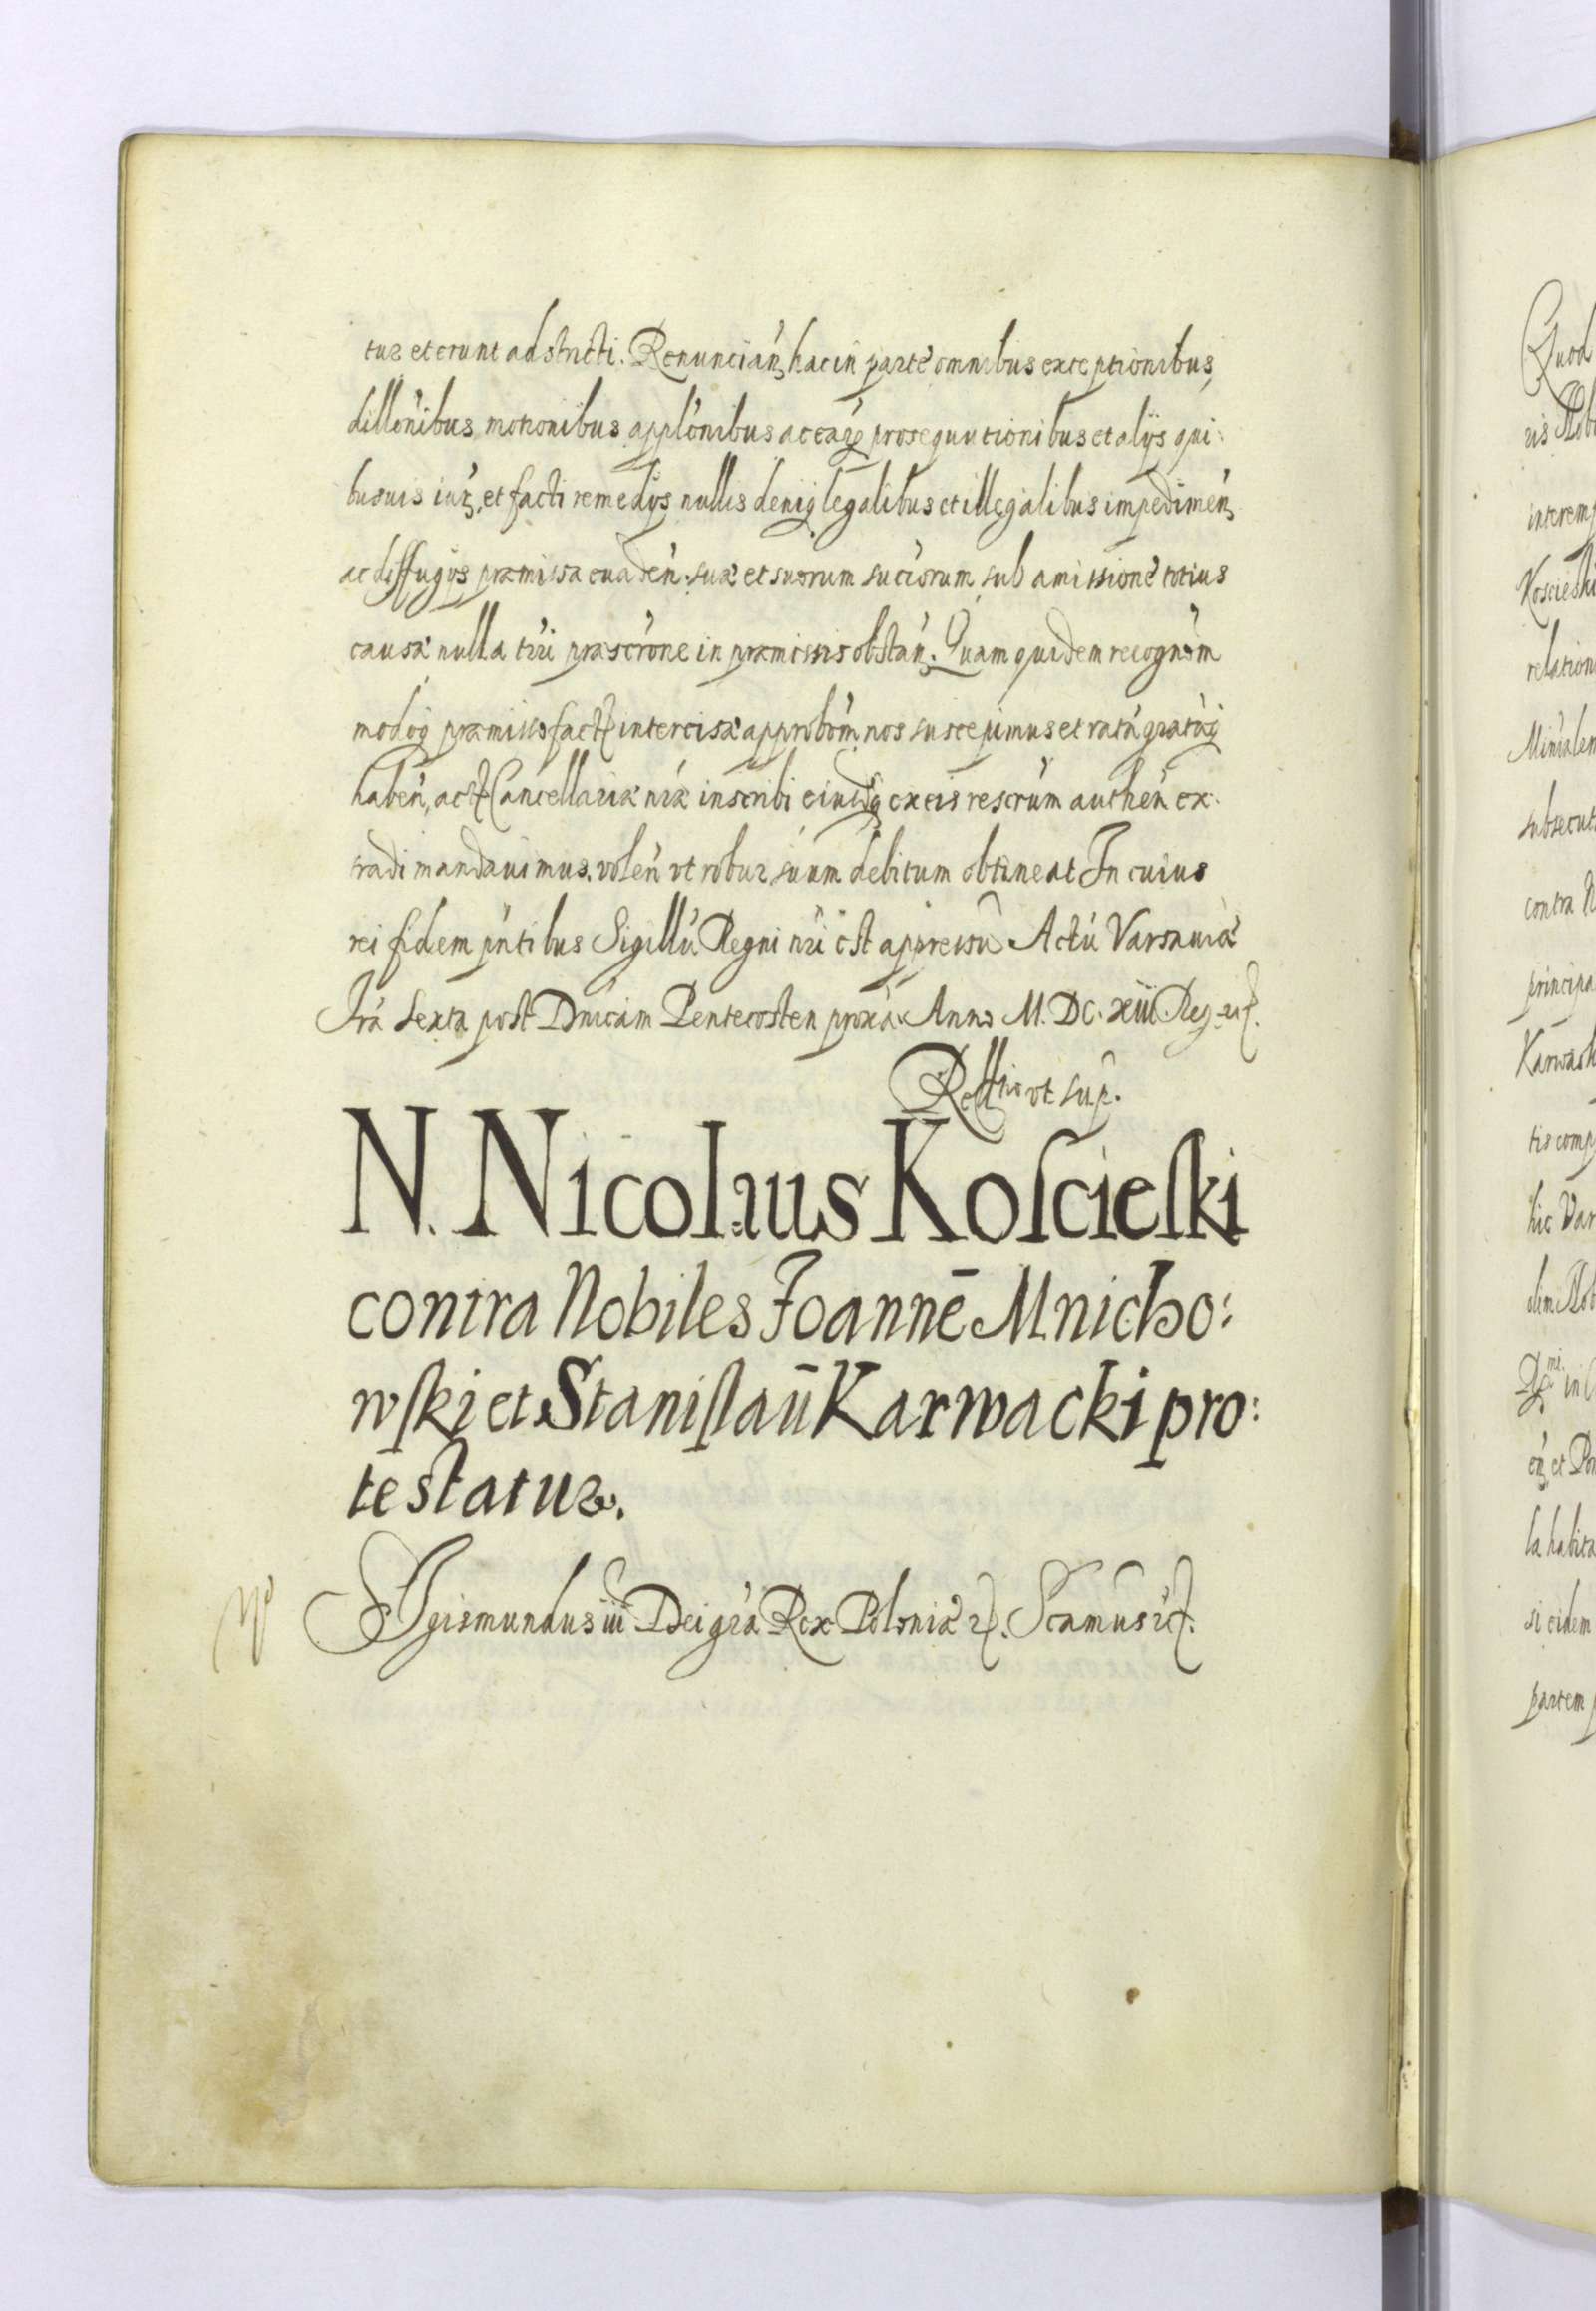 tur et erunt adstricti. Renuncian̄ hac in parte omnibus exceptionibus,
dillōnibus, motionibus applōnibus ac earū prosequutionibus et alijs qui:
busuis iur̄, et facti remedijs nullis deniq legalibus et illegalibus impedimen̄
ac diffugijs præmissa euaden̄. suæ et suorum succōrum, sub amissione totius
causæ nulla tr̄ri præscrōne in præmissis obstan̄. Quam quidem recognōm
modoq præmisso fact intercisæ approbōm nos suscepimus et ratū gratūq
haben̄, act Cancellariæ nr̄æ inscribi eiusdq ex eis rescrūm authen̄ ex:
tradi mandauimus. volen̄ vt robur suum debitum obtineat In cuius
rei fidem pn̄tibus Sigillū Regni nr̄i est appressū Actū Varsauiæ
Fr̄a sexta post Dnicam Pentecosten proxā Anno M. DC. xiii Reg. ut.
Rel̄tio vt sup.
N. Nicolaus Koſcieſki
contra Nobiles Joannē Mnicho:
wſki et Staniſlaū Karwacki pro:
testatur.
Sigismundus iii Dei grā Rex Poloniæ etc. Scamus etc.
Quod
ris Nob
interem
Koscieski
relation
Minialem
subsecut
contra N
principa
Karwask
tis comp
hic Var
olim Nob
in
et Po
la habita
si eidem
partem p